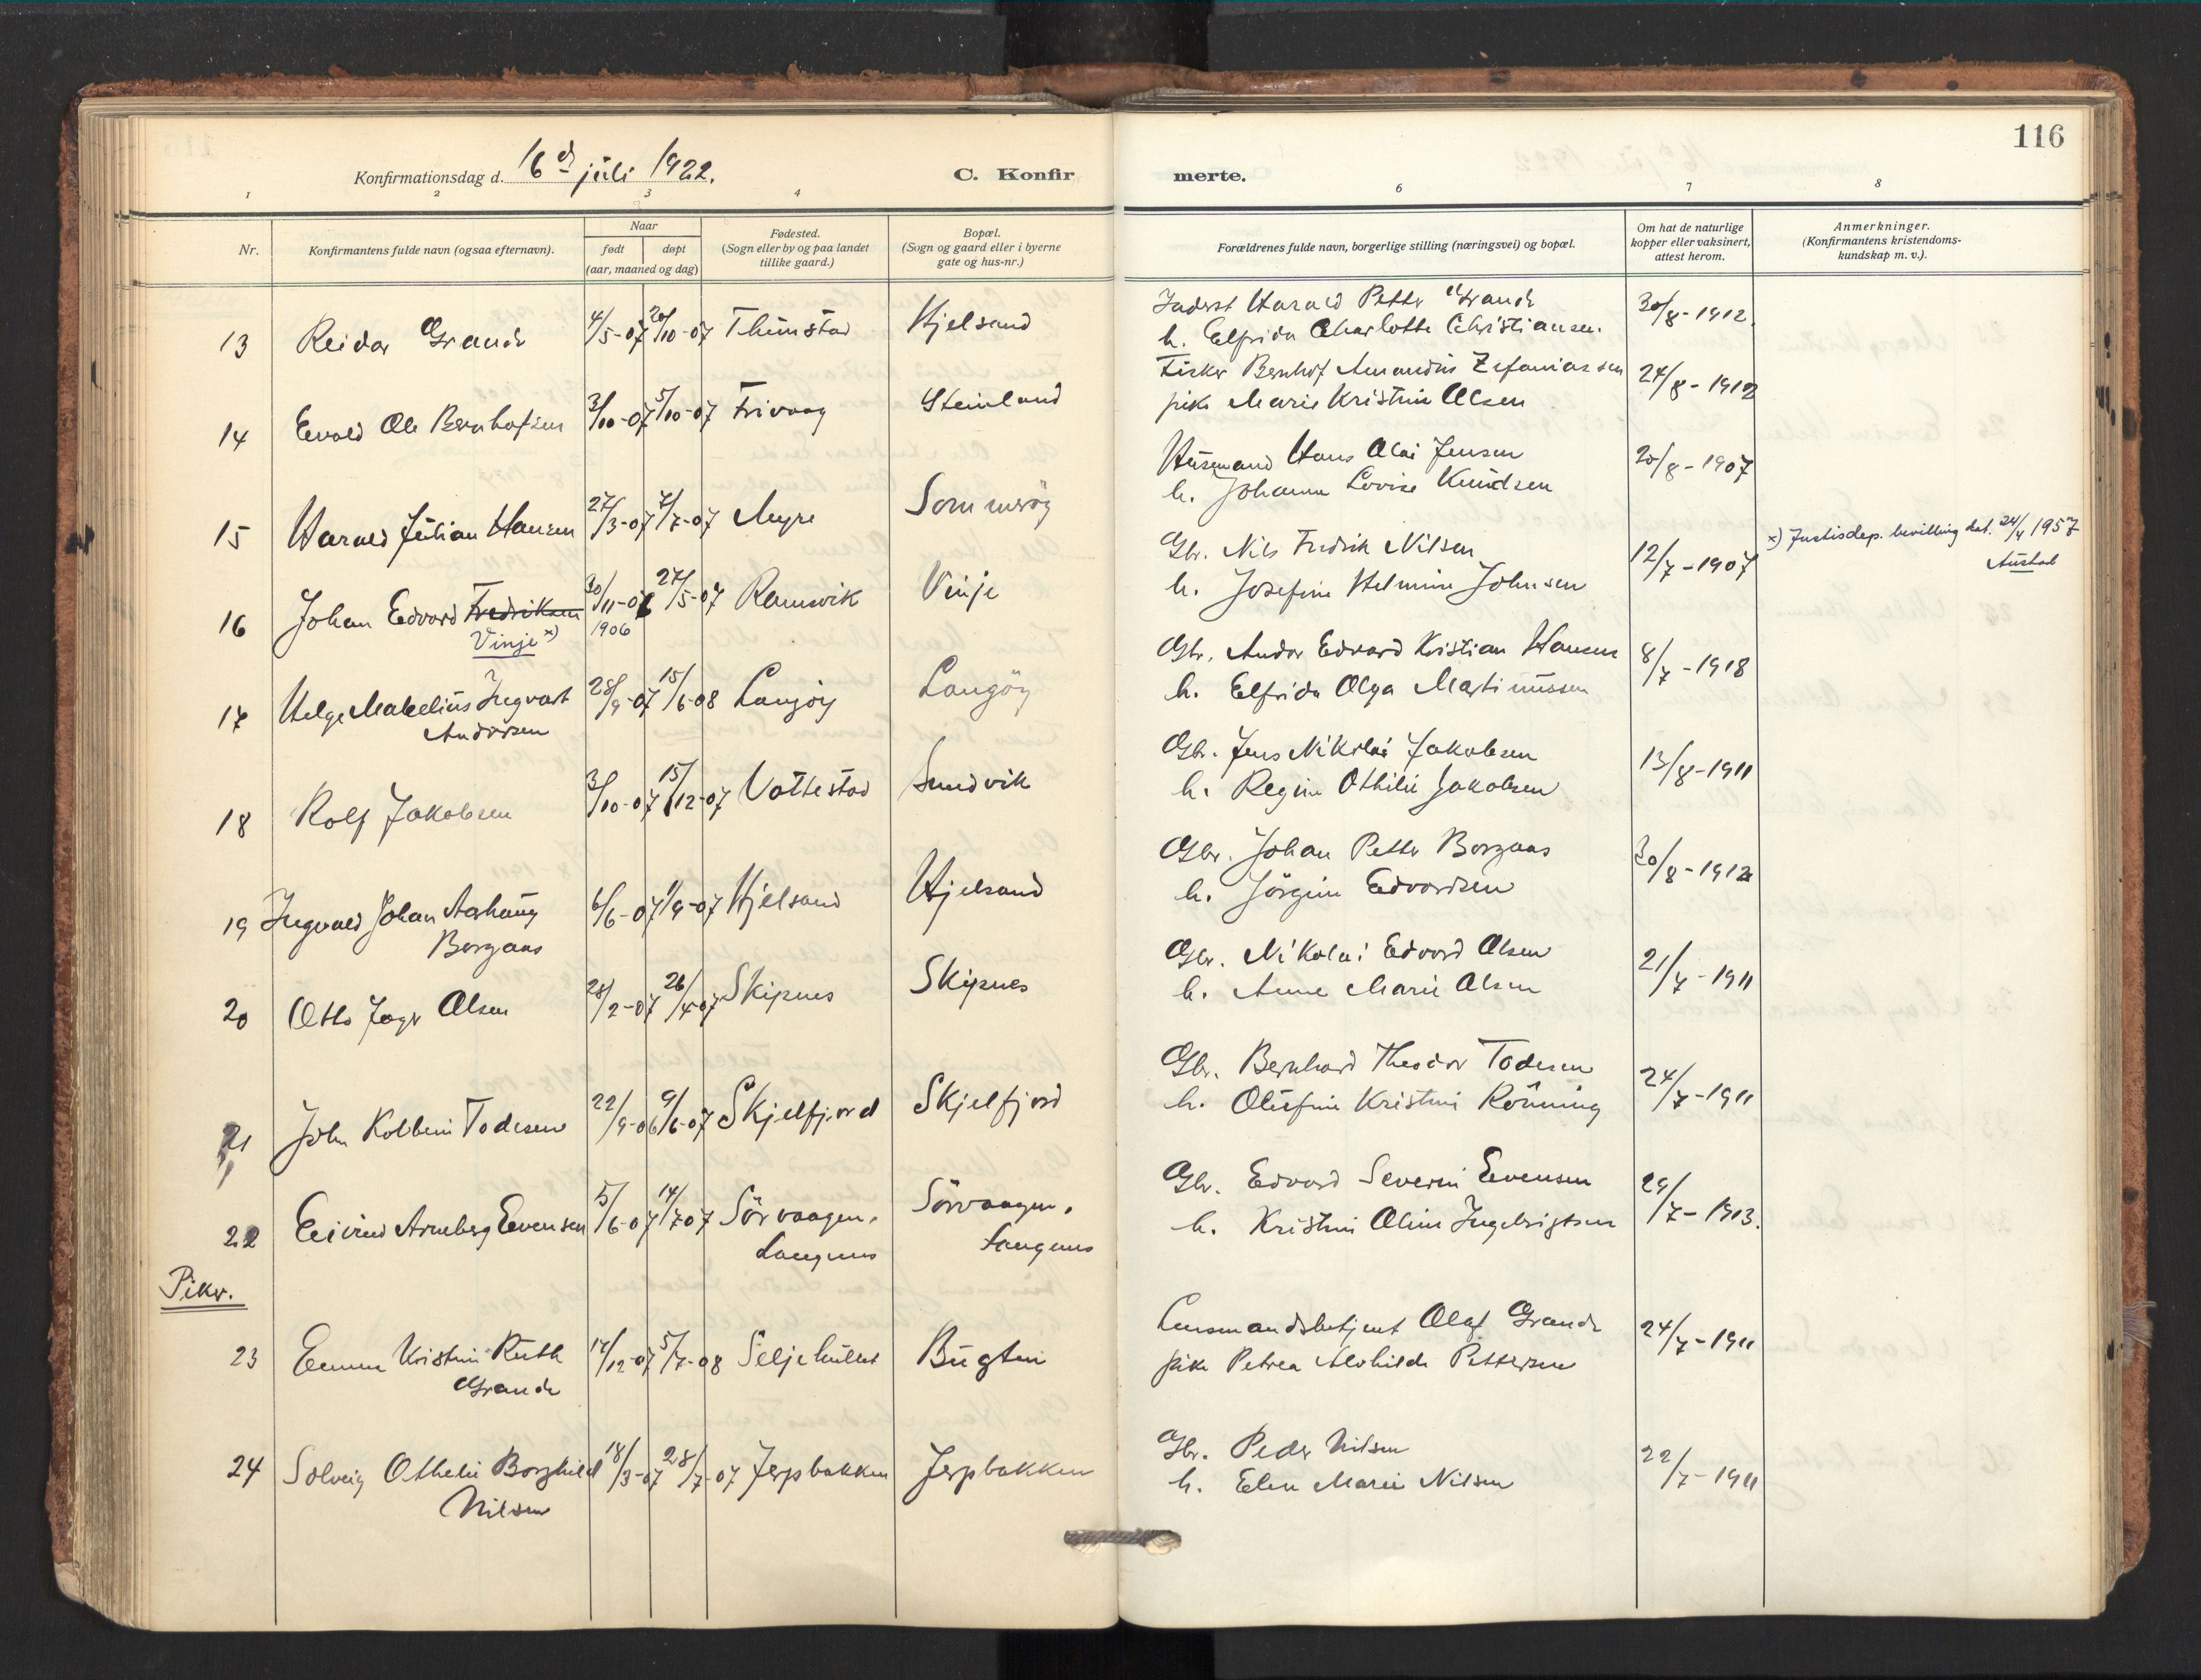 116
Konfirmationsdag d. 16d juli 1922. C. Konfirmerte.
1 2 3 4 6 7 8
Nr.
Konfirmantens fulde navn (ogsaa efternavn).
Naar
født døpt
(aar, maaned og dag)
Fødested.
(Sogn eller by og paa landet
tillike gaard.)
Bopæl.
(Sogn og gaard eller i byerne
gate og hus-nr.)
Forældrenes fulde navn, borgerlige stilling (næringsvei) og bopæl.
Om hat de naturlige
kopper eller vaksinert,
attest herom.
Anmerkninger.
(Konfirmantens kristendoms-
kundskap m. v.).
13 Reidar Grande 4/5-07 20/10-07 Thunstad Hjelsand
Inderst Harald Petter Grande 30/8-1912.
h. Elfrida Charlotte Christiansen.
14 Evald Ole Bernhofsen 3/10-07 5/10-07 Frivaag Steinland
Fisker Bernhof Amandus Zefaniassen 24/8-1912
pike Marie Kristine Olsen
15 Harald Julian Hansen 27/3-07 7/7-07 Myre Sommerøy
Husmand Hans Olai Jensen 20/8-1907
h. Johanna Lovise Knudsen
16 Johan Edvard Fredriksen 30/11-06 27/5-07 Ramsvik Vinje
Vinje x) 1906
Gbr. Nils Fredrik Nilsen 12/7-1907 x) Justisdep. bevilling dat. 24/4 1957
h. Josefine Helmine Johnsen Austad
17 Helge Makelius Ingvart 28/9-07 15/6-08 Langøy Langöy
Andersen
Gbr. Andor Edvard Kristian Hansen 8/7-1918
h. Elfrida Olga Martinussen
18 Rolf Jakobsen 3/10-07 15/12-07 Vottestad Sundvik
Gbr. Jens Nikolai Jakobsen 13/8-1911
h. Regine Othilie Jakobsen
19 Ingvald Johan Ashaug 6/6-07 1/9-07 Hjelsand Hjelsand
Borgaas
Gbr. Johan Petter Borgaas 30/8-1912
h. Jörgine Edvardsen
20 Otto Inge Olsen 28/2-07 26/4-07 Skipnes Skipnes
Gbr. Nikolai Edvard Olsen 21/7-1911
h. Anne Marie Olsen
21 John Kolbein Todesen 22/9-06 9/6-07 Skjelfjord Skjelfjord
Gbr. Bernhard Theodor Todesen 24/7-1911
h. Olufine Kristine Rönning
22 Eivind Arneberg Evensen 5/6-07 14/7-07 Sörvaagen, Sörvaagen,
Langenes Langenes
Gbr. Edvard Severin Evensen 29/7-1913.
h. Kristine Oline Ingebrigtsen
Piker.
23 Emma Kristine Ruth 17/12-07 5/7-08 Seljehullet Bugten
Grande
Lensmandsbetjent Olaf Grande 24/7-1911
pike Petrea Alvhilde Pettersen
24 Solveig Othelie Borghild 18/3-07 28/7-07 Jerpbakken Jerpbakken
Nilsen
Gbr. Peder Nilsen 22/7-1911
h. Elen Marie Nilsen